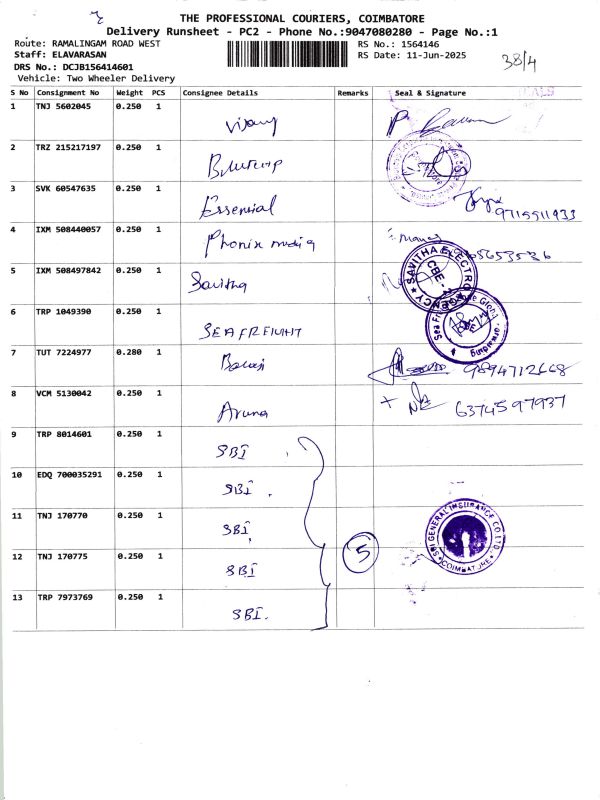 THE PROFESSIONAL COURIERS, COIMBATORE
Delivery Runsheet - PC2 - Phone No.:9047080280 - Page No.:1
Route: RAMALINGAM ROAD WEST
Staff: ELAVARASAN
DRS No.: DCJB156414601
Vehicle: Two Wheeler Delivery
RS No.: 1564146
RS Date: 11-Jun-2025
38/4
S No Consignment No Weight PCS Consignee Details Remarks Seal & Signature
1 TNJ 5602045 0.250 1 Vijay
2 TRZ 215217197 0.250 1
3 SVK 60547635 0.250 1 Essential 9715511933
4 IXM 508440057 0.250 1 Phonix media
5 IXM 508497842 0.250 1 Savitha SAVITHA ELECTRO AGENCY CBE
6 TRP 1049390 0.250 1 SEA FREIGHT
7 TUT 7224977 0.280 1 Balaji 9894712668
8 VCM 5130042 0.250 1 Aruna 6374597937
9 TRP 8014601 0.250 1 SBI
10 EDQ 700035291 0.250 1 SBI
11 TNJ 170770 0.250 1 SBI SBI GENERAL INSURANCE CO.LTD. COIMBATORE
12 TNJ 170775 0.250 1 SBI 5
13 TRP 7973769 0.250 1 SBI.